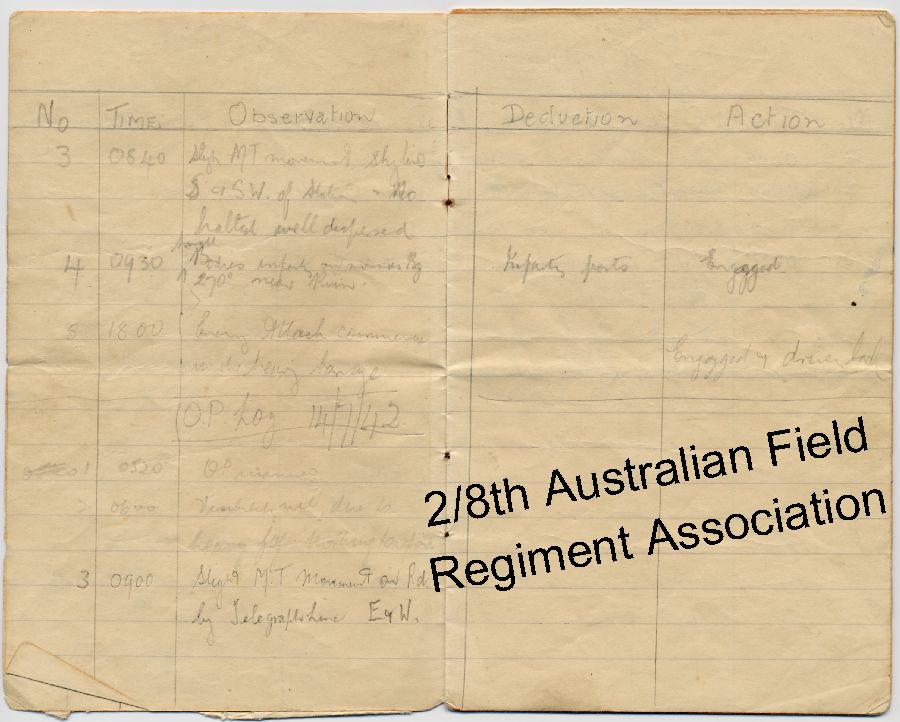 No TIME. Observation Deduction Action
3 0840 Slight MT movement, skyline
S & SW. of Station -
halted well dispersed
4 0930 Bodies on
270° near Ruin. Infantry posts Engaged
5 1800 Enemy Attack commence
heavy barrage Engaged & driven back
O.P. Log 14/7/42
1 0520 O.P. manned
2 0600 Visibility nil due to
heavy fog
3 0900 Slight M.T Movement on Rd
by Telegraph Line E & W.
2/8th Australian Field
Regiment Association